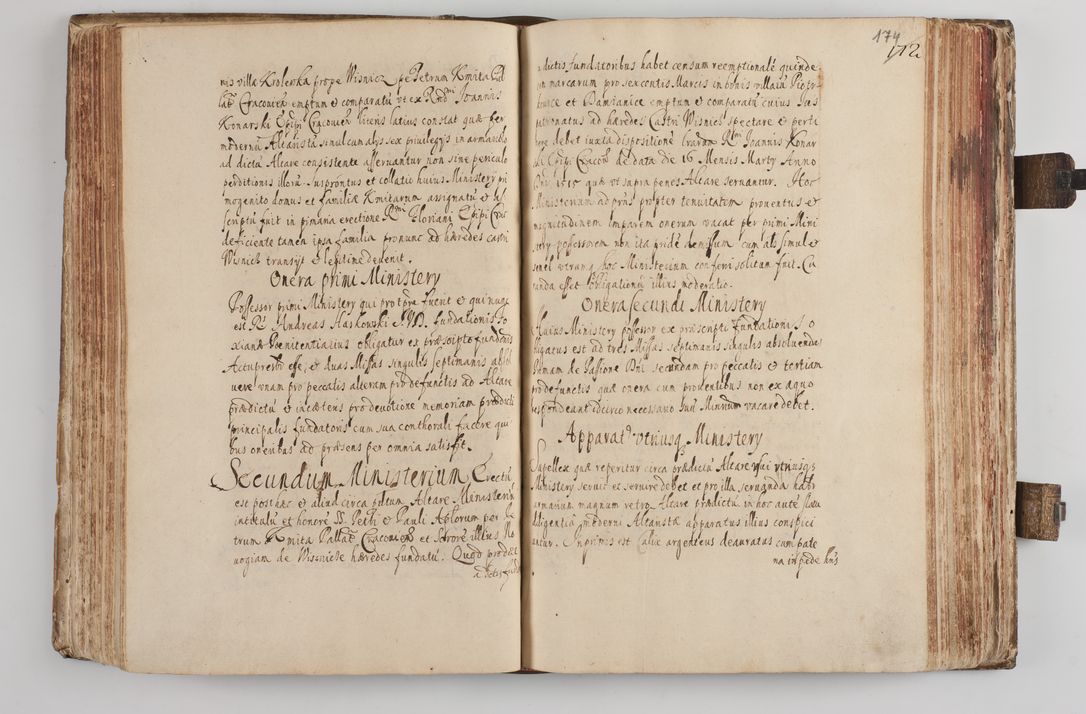 nis villæ Krolewka prope Wisnicz per Petrum Kmita Pal
lat. Cracovien emptum et comparatū vt ex Rndmi Joannis
Konarski Epipi Cracovien literis latius constat quæ per
modernū Altaristā simul cum alys sex privilegys in armariolo
ad dictū Altare consistente asseruantur non sine periculo
perditionis illorū. Juspatrontus et collatio huius Ministery pri
mogenito domus et familiæ Kmitarum assignatū et as
scriptū fuit in primaria erectione Rmi Floriani Epipi Crac
deficiente tamen ipsa familia pronunc ad hæredes castri
Wisnich transyt et legitime devenit.
Onera primi Ministery
Possessor primi Ministery qui pro tpre fuerit et qui nunc
est Rd Andreas Haskowski J.V.D. fundationis To
xianæ Pœnitentiarius obligatur ex præscripto fundonis
Actu presb esse, et duas Missas singulis septimanis absol
uere vnam pro peccatis alteram pro defunctis ad Altare
prædictū et in cæteris pro devotione memoriam prædicti
principalis fundatoris cum sua conthorali facere qui
bus oneribus ad præsens per omnia satisfit.
Secundum Ministerium Erectū
est post hac et aliud circa pdtum Altare Ministeriū
intitulū et honore SS. Petri et Pauli Aplorum per Pe
trum Kmita Pallat Cracovien et Sorore illius No
uogiam de Wisniche hæredes fundatū. Quod prædict
a dictis fund
174
172
a dictis fundatoribus habet censum reemptionalē quinde
cim marcarum pro sexcentis Marcis in bonis villarū Piotr
kowice et Damianice emptum et comparatū cuius Jus
patronatus ad hæredes Castri Wisnich spectare et perti
nere debet iuxta dispositionē lrarum Rmi Joannis Konar
ski Epipi Cracovn de data die 16 Mensis Marty Anno
Dni 1515 quæ vt supra penes Altare seruantur. Hoc
Ministerium ad præns propter tenuitatem prouentus et
magnitudinem imparem onerum vacat per primi Mini
stery possessorem non ita pridē demissum cum als simul et
semel vtrumq hoc Ministerium conferri solitum fuit. Cu
randa esset obligationū illius moderatio.
Onera secundi Ministery
Huius Ministery possessor ex præscriptu fundationis o
bligatus est ad tres Missas septimanis singulis absoluendas
primam de Passione Dni secundam pro peccatis et tertiam
pro defunctis quæ onera cum prouentibus non ex æquo
respondeant idcirco necessario hui Minrium vacare debet.
Apparatū vtriusq Ministery
Supellex quæ reperitur circa prædictū Altare vsui vtriusq
Ministery seruit et seruire debet et pro illa seruanda habr
armarium magnum retro Altare prædictū in hoc autē
diligentia moderni Altaristæ apparatus illius conspici
untur. Inprimis est Calix argenteus deauratus cum pate
na in pede hns